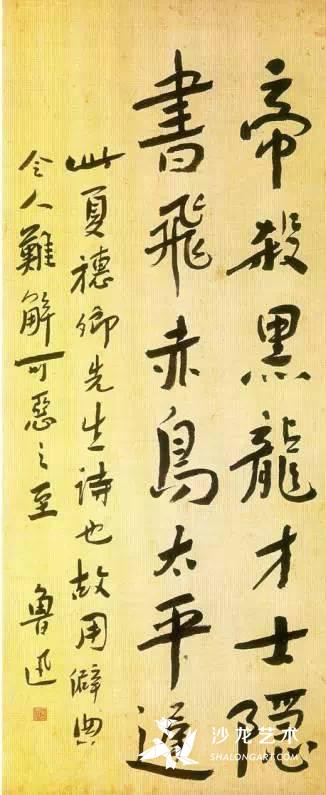 帝殺黑龍才士隱
書飛赤鳥太平遲
此夏穗卿先生詩也故用僻典
令人難解可惡之至
魯迅
沙龙艺术
SHALONGART.COM